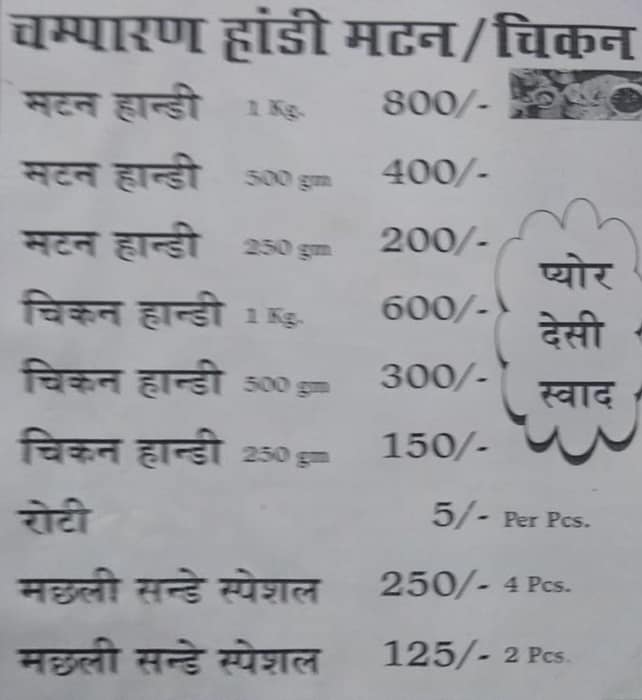 चम्पारण हांडी मटन/चिकन
मटन हान्डी 1 Kg. 800/-
मटन हान्डी 500 gm 400/-
मटन हान्डी 250 gm 200/-
चिकन हान्डी 1 Kg. 600/-
चिकन हान्डी 500 gm 300/-
चिकन हान्डी 250 gm 150/-
प्योर
देसी
स्वाद
रोटी 5/- Per Pcs.
मछली सन्डे स्पेशल 250/- 4 Pcs.
मछली सन्डे स्पेशल 125/- 2 Pcs.